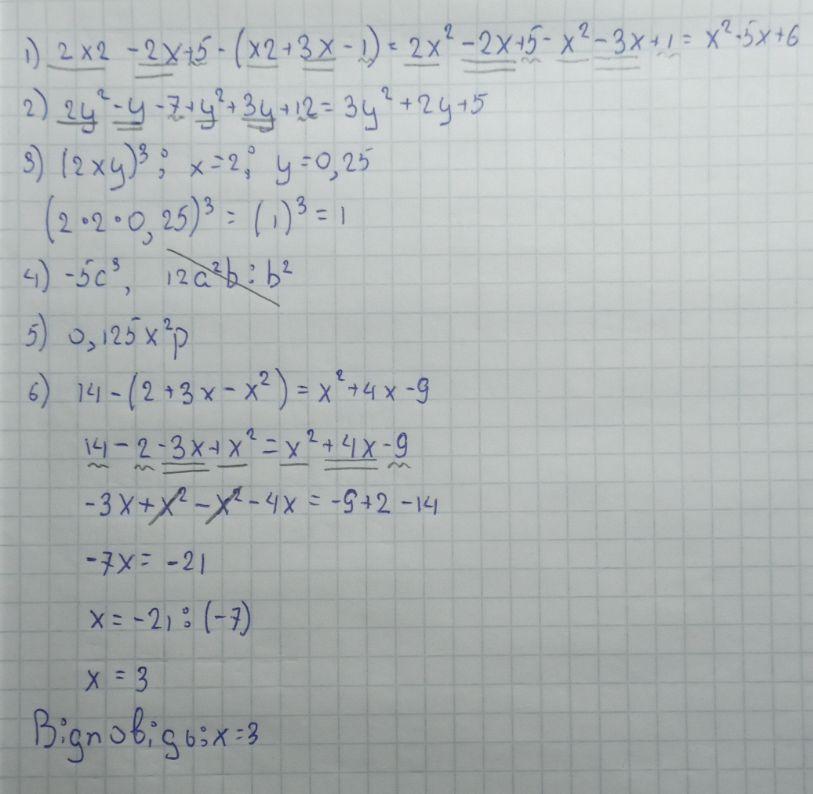 1) 2x2 -2x+5 - (x2+3x-1) = 2x² -2x+5 - x² -3x+1 = x²-5x+6
2) 2y² -y -7+y²+3y+12 = 3y²+2y+5
3) (2xy)³; x=2; y=0,25
(2·2·0,25)³ = (1)³ = 1
4) -5c³, 12a²b : b²
5) 0,125x²p
6) 14-(2+3x-x²) = x²+4x-9
14-2-3x+x² = x²+4x-9
-3x+x²-x²-4x = -9+2-14
-7x = -21
x = -21 : (-7)
x = 3
Відповідь: x=3